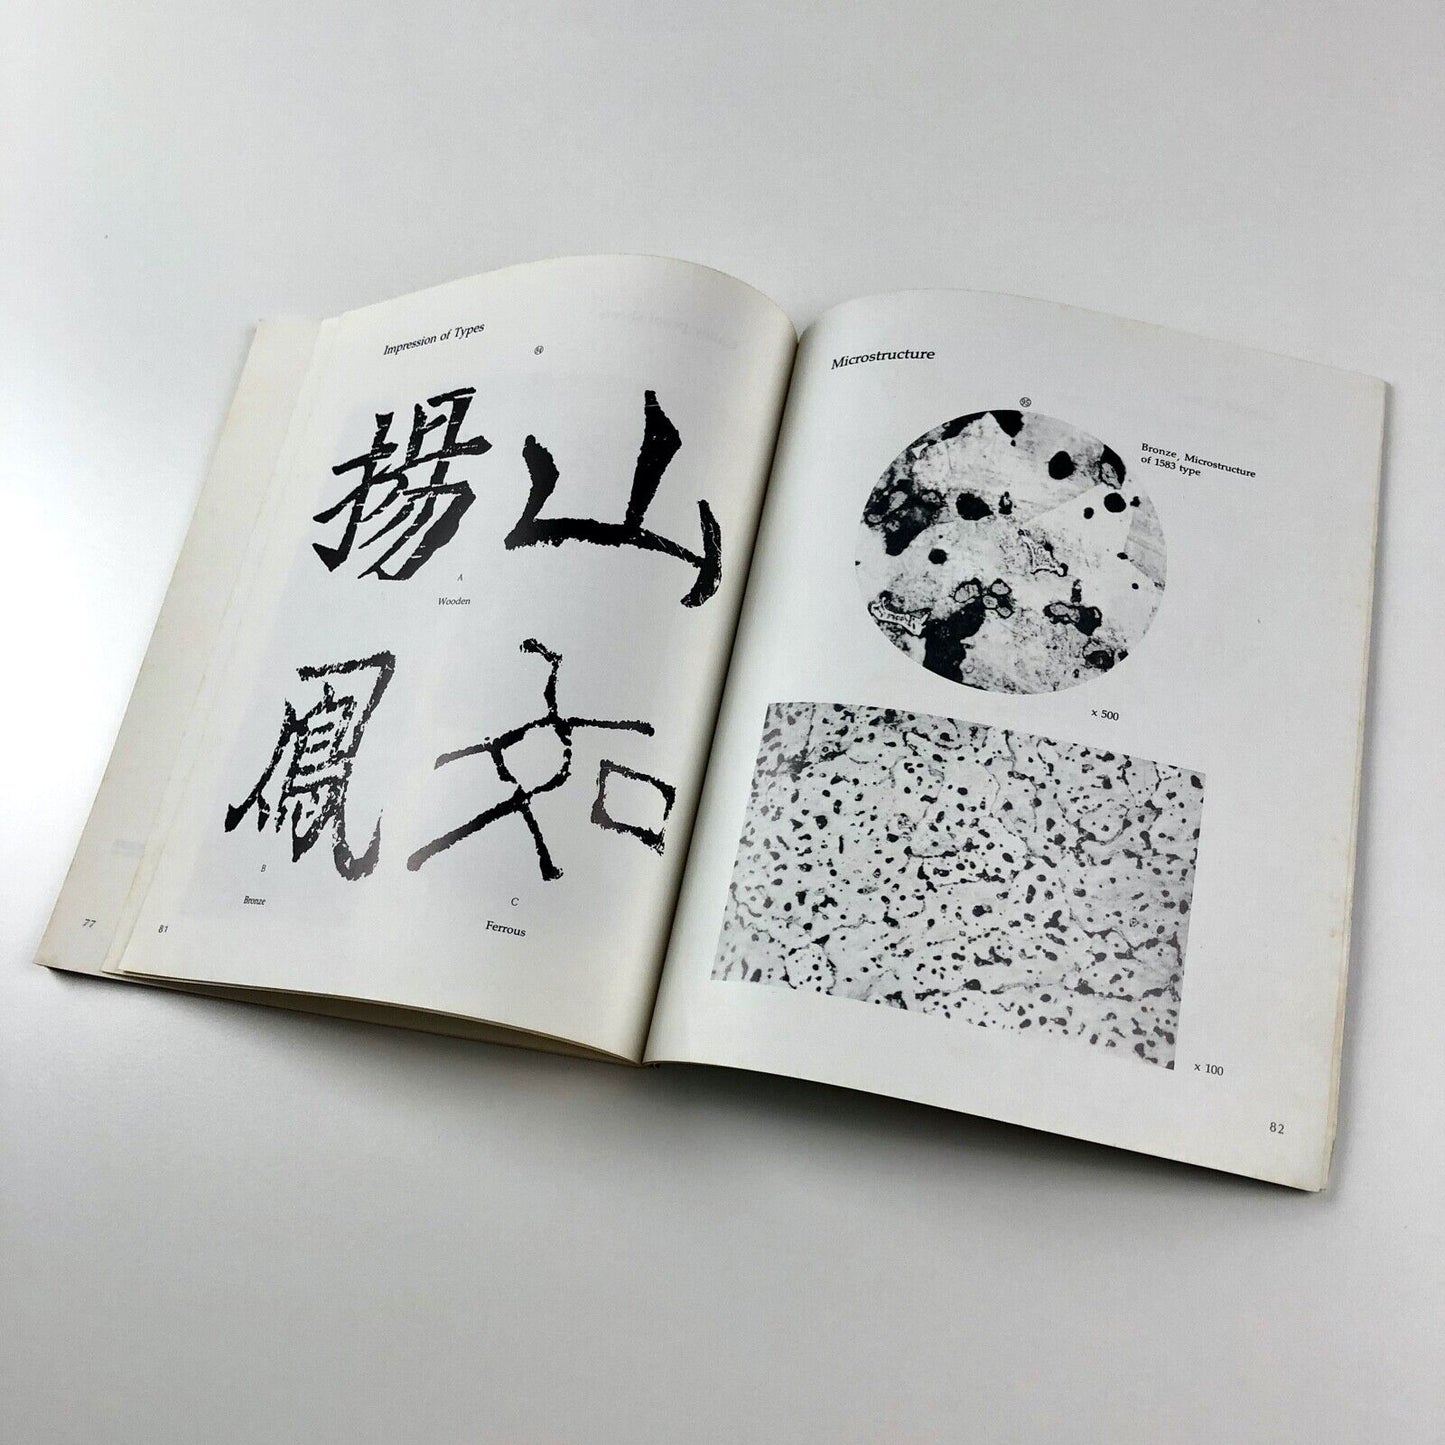 Impression of Types
94
揚 山
A
Wooden
鳳 如
B
Bronze
C
Ferrous
77
81
Microstructure
95
Bronze, Microstructure
of 1583 type
x 500
x 100
82